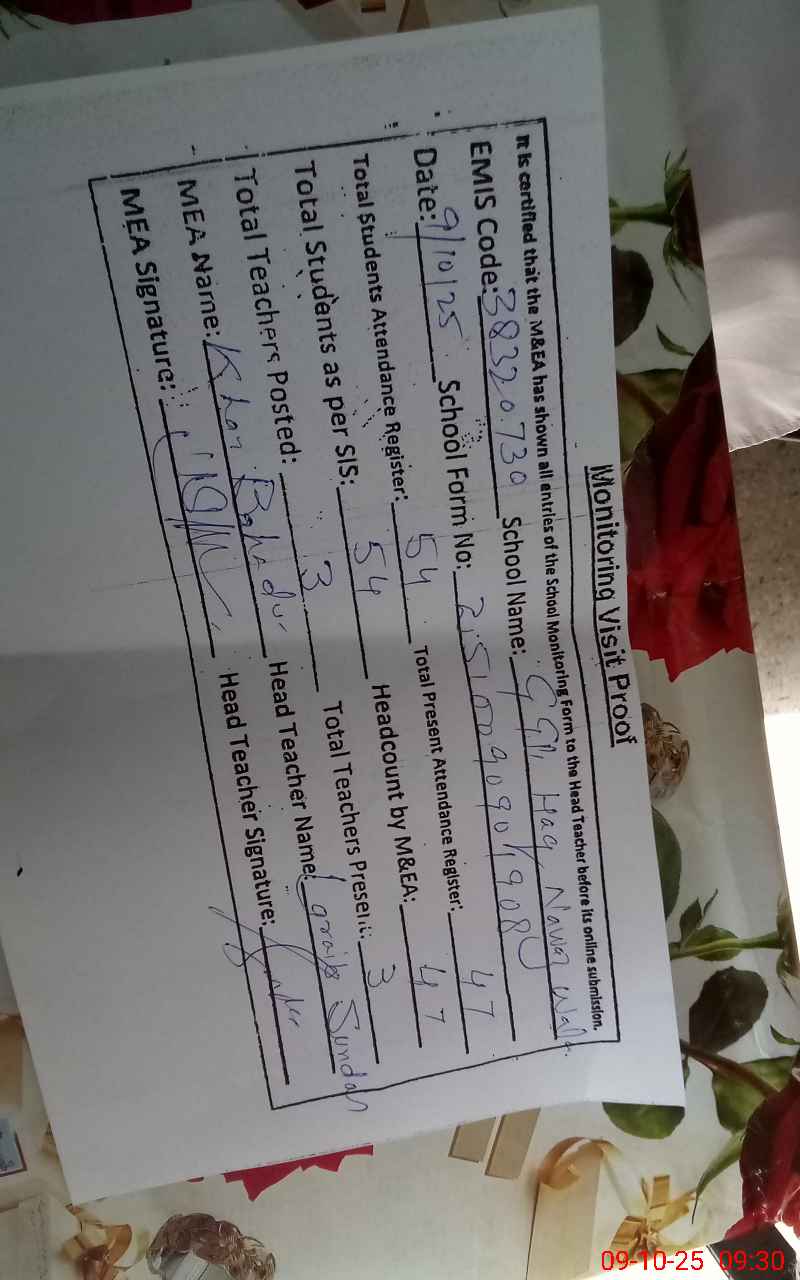 Monitoring Visit Proof
It is certified that the M&EA has shown all entries of the School Monitoring Form to the Head Teacher before its online submission.
EMIS Code: 38320730 School Name: GGPS Haq Nawaz Wala
Date: 9/10/25 School Form No:
Total Students Attendance Register: 54 Total Present Attendance Register: 47
Total Students as per SIS: 54 Headcount by M&EA: 47
Total Teachers Posted: 3 Total Teachers Present: 3
MEA Name: Khan Bahadur Head Teacher Name: Sundas
MEA Signature: Head Teacher Signature:
09-10-25 09:30